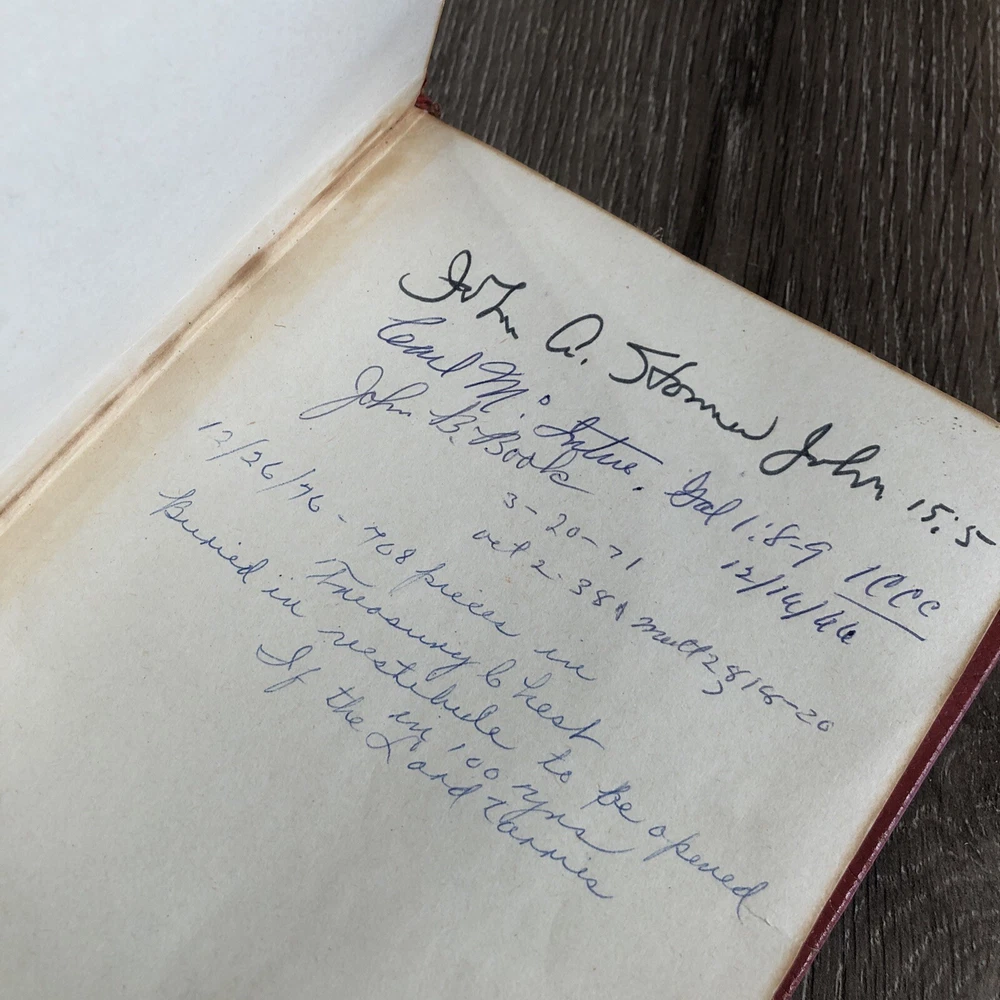 John A. Stormer John 15:5
Carl McIntire. Gal 1:8-9 ICCC
John B. Book 12/14/66
3-20-71
Oct 2-38 Matt 28 18-20
12/26/76 - 768 pieces in
Treasury Chest
Buried in vestibule to be opened
in 100 yrs
If the Lord tarries